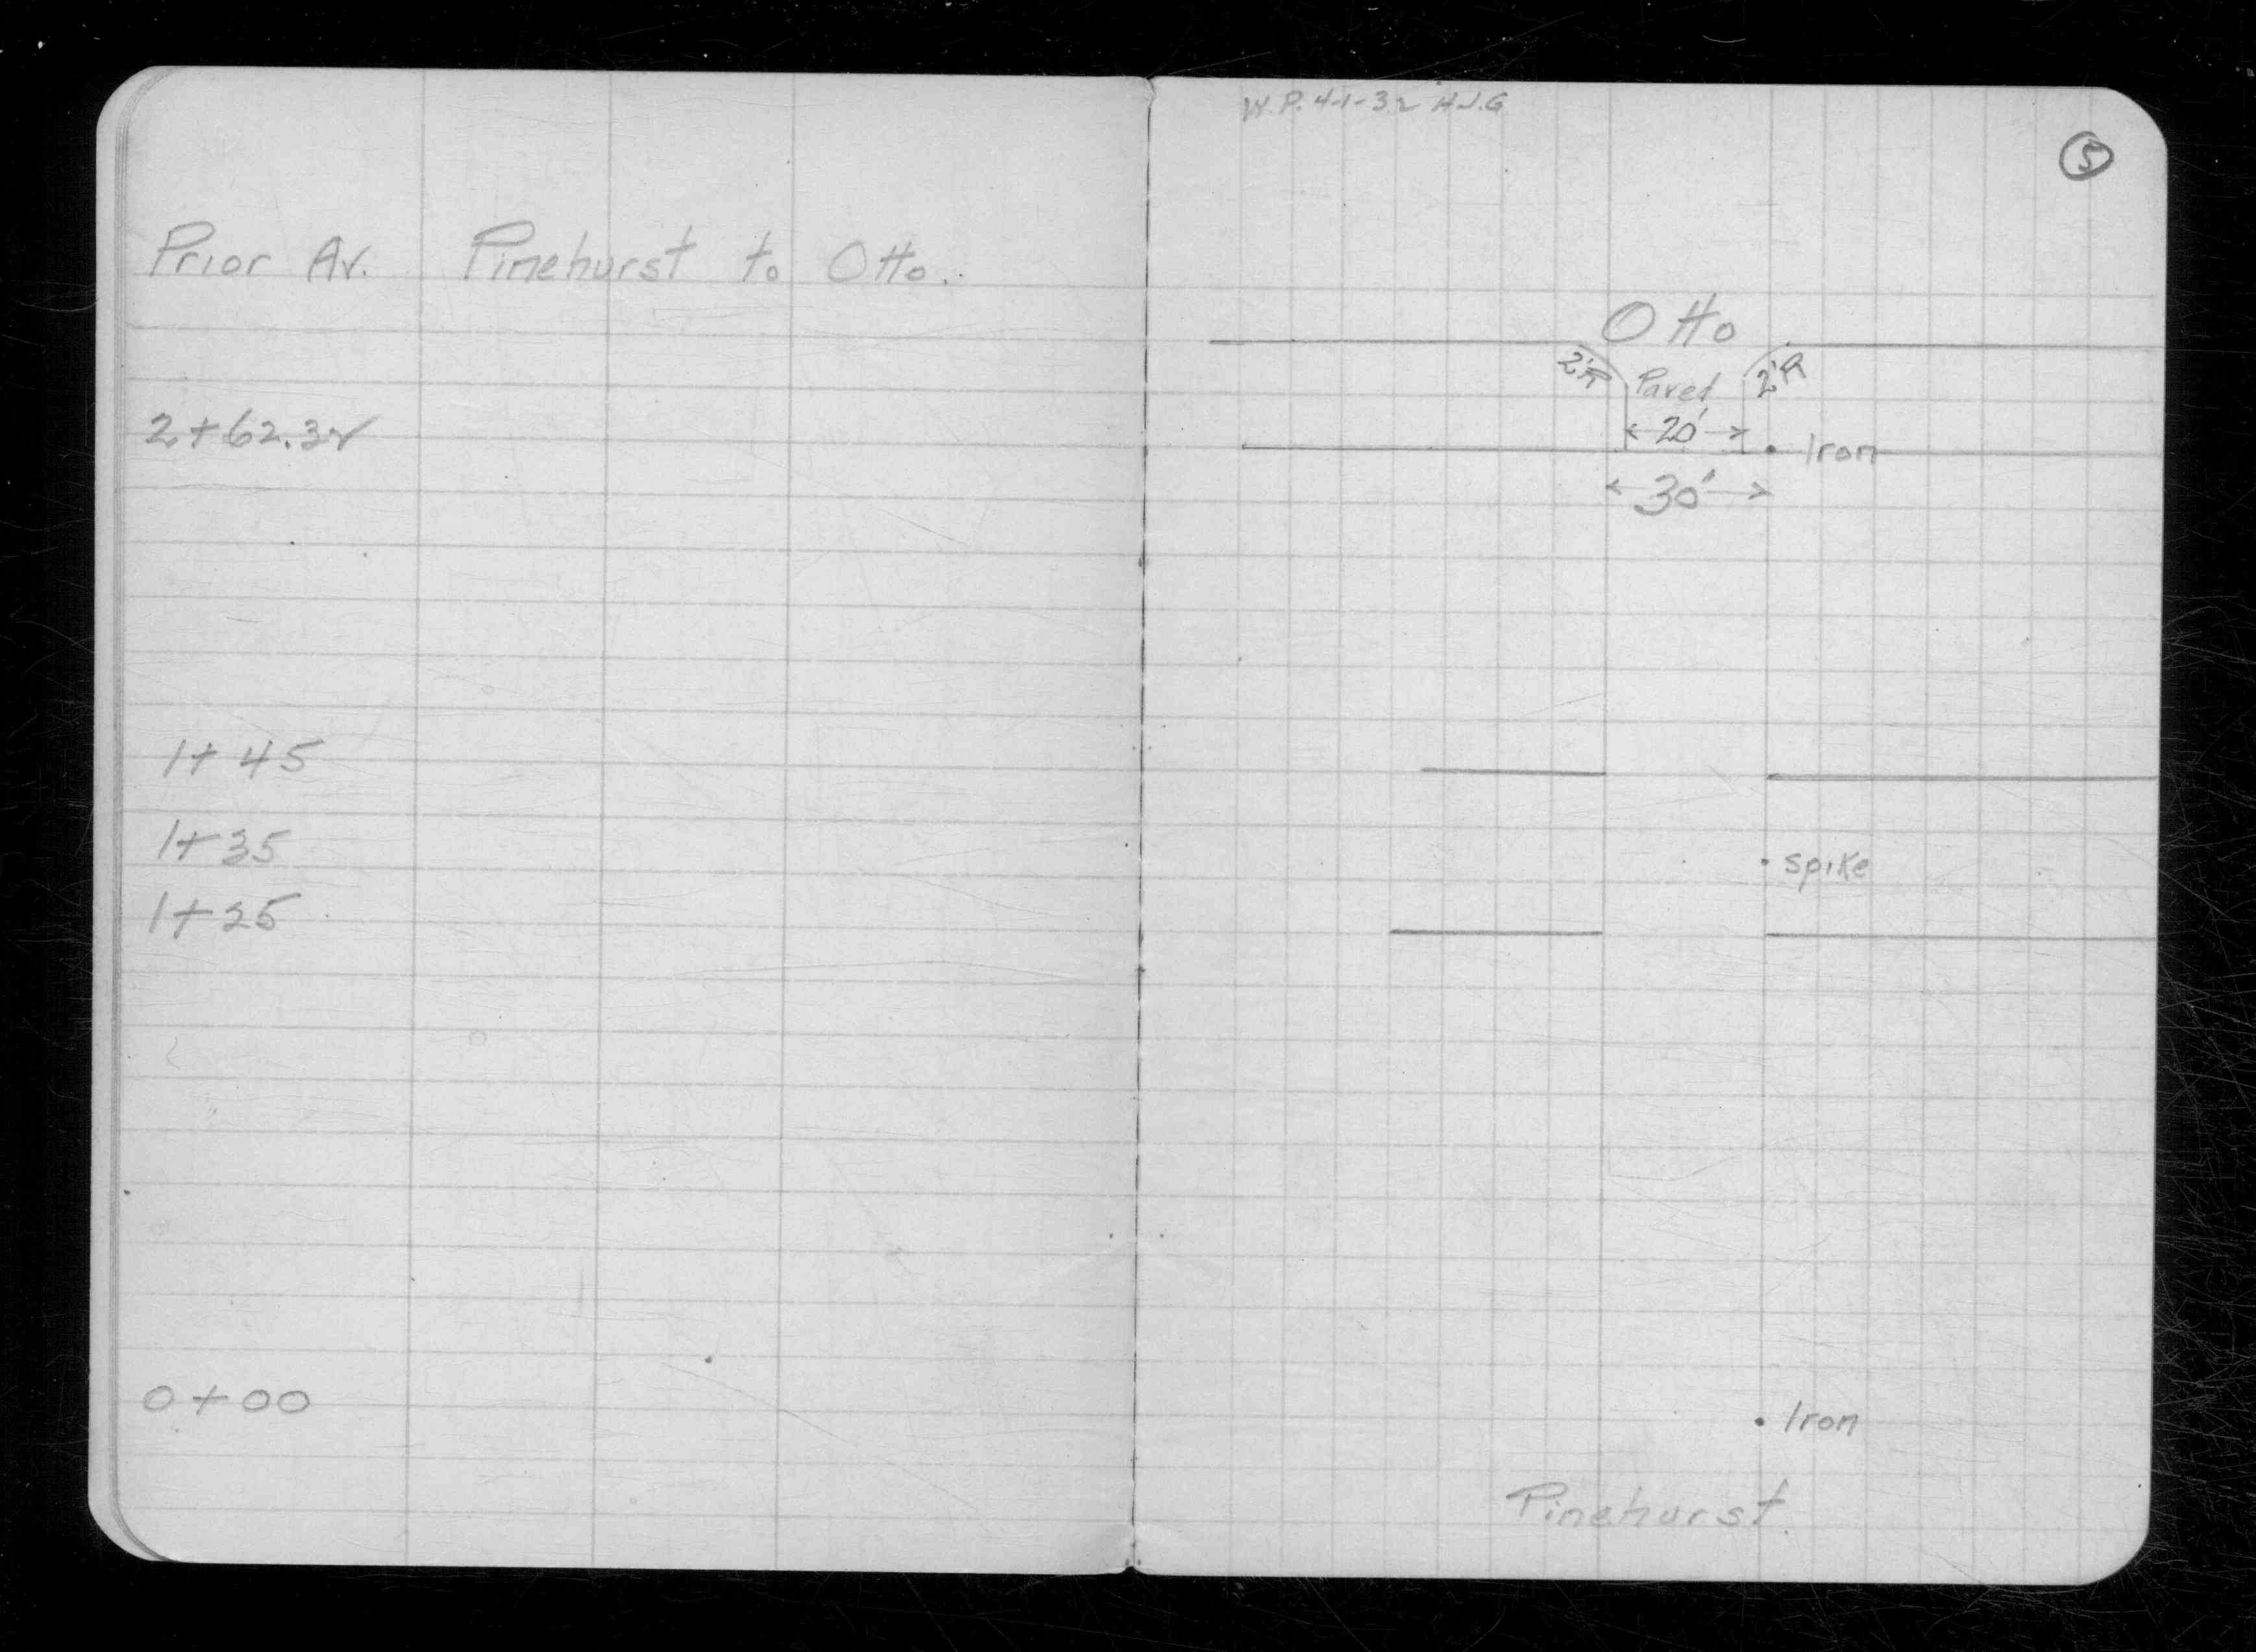 Prior Av. Pinehurst to Otto.
2+62.32
1+45
1+35
1+25
0+00
W.P. 4-1-32 H.J.G
5
Otto
2'R Paved 2'R
20'
Iron
30'
spike
Iron
Pinehurst.